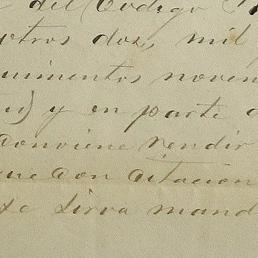 del Codigo
otros dos, mil
quinientos noven
y en parte
conviene rendir
que con citacion
se sirva mand